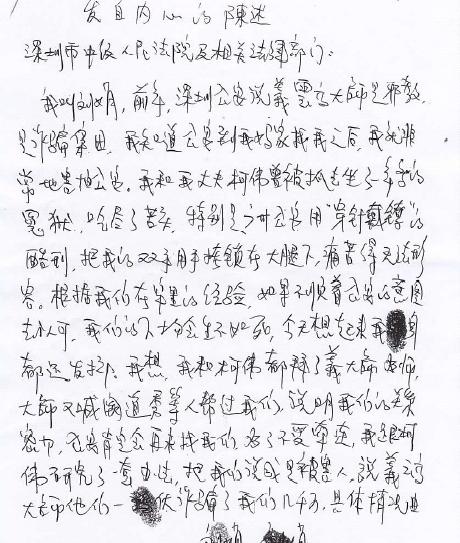 发自内心的陳述
深圳市中级人民法院及相关法律部门：
我叫刘娟，前年，深圳公安说義雲高大師是邪教，
是诈骗集団，我知道公安到我妈家找我之后，我就非
常地害怕公安。我和我丈夫柯偉曾被抓去坐了一年多的
冤狱，吃尽了苦头，特别是公安用“穿针戴镣”的
酷刑，把我的双手用手铐锁在大腿下，痛苦得无法形
容。根据我们在牢里的经验，如果不顺着公安的意图
去认可，我们的下场会生不如死，今天想起来我身
都还发抖。我想，我和柯偉都拜了義大師為师，
大師又喊 等人帮过我们，说明我们的关系
密切，公安肯定会再来找我们，为了不受牵连，我跟柯
偉研究了一套办法，把我们说成是被害人，说義云高
大師他们一伙诈骗了我们几千万，具体情况由